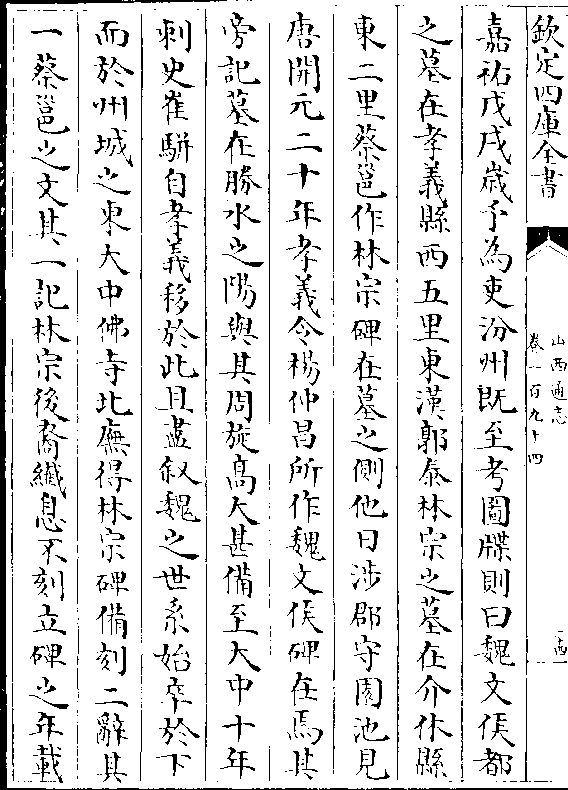 欽定四庫全書
山西通志
卷一百九十四
嘉祐戊戌歲予為吏汾州既至考圖牒則曰魏文侯都
之墓在孝義縣西五里東漢郭泰林宗之墓在介休縣
東二里蔡邕作林宗碑在墓之側他日涉郡守園池見
唐開元二十年孝義令楊仲昌所作魏文侯碑在焉其
旁記墓在勝水之陽與其周旋高大甚備至大中十年
刺史崔駢自孝義移於此且盡叙魏之世系始卒於下
而於州城之東大中佛寺北廡得林宗碑備刻二辭其
一蔡邕之文其一記林宗後裔纖息不刻立碑之年載